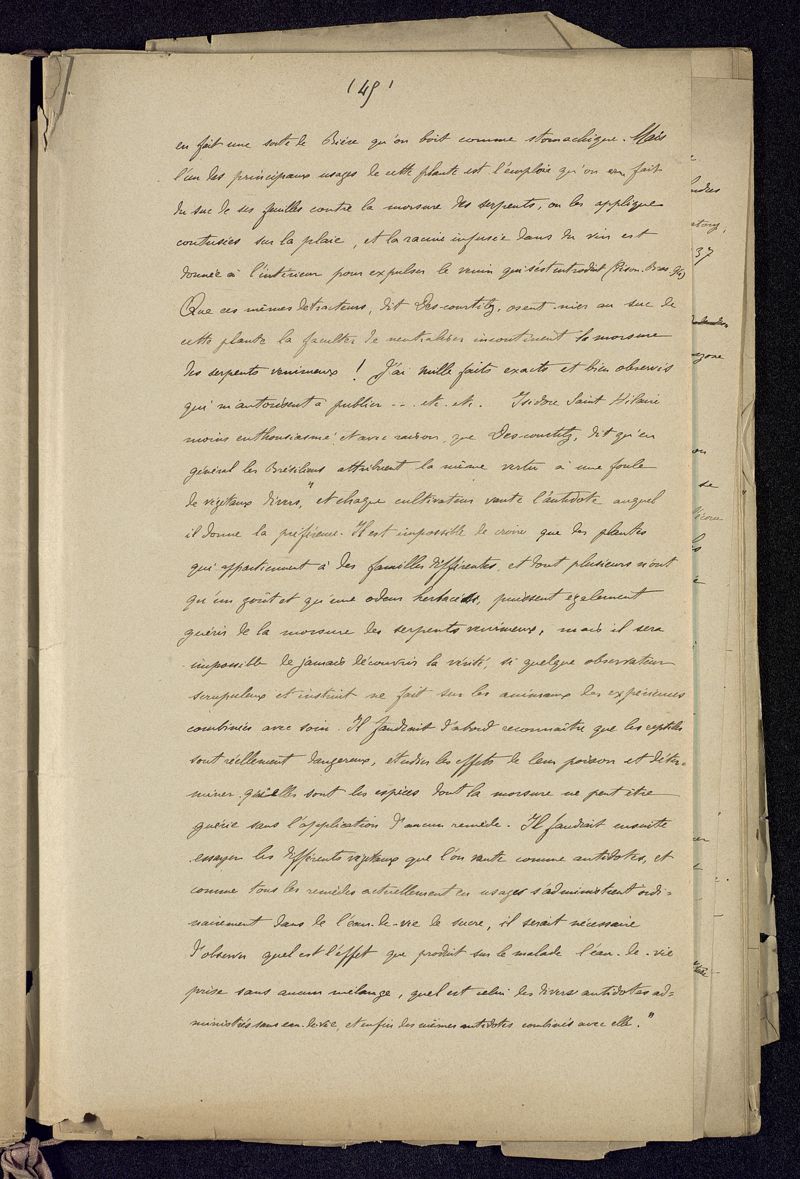 (45)
en fait une sorte de Bière qu'on boit comme stomachique. Mais
l'un des principaux usages de cette plante est l'emploie qu'on en fait
du suc de ses feuilles contre la morsure des serpents, on les applique
contusées sur la plaie, et la racine infusée dans du vin est
donnée à l'intérieur pour expulser le venin qui s'est introduit (Pison. Bras. 96)
Que ces mêmes detracteurs, dit Des-courtilz, osent nier au suc de
cette plante la faculter de neutraliser incontinent la morsure
des serpents venimeux! J'ai mille faits exacts et bien observés
qui m'autorisent a publier -- etc. etc. Isidore Saint Hilaire
moins enthousiasmé et avec raison, que Des-courtilz, dit qu'en
général les Brésiliens attribuent la même vertu à une foule
de végétaux divers, "et chaque cultivateur vante l'antidote auquel
il donne la préférence. Il est impossible de croire que des plantes
qui appartiennent à des familles différentes, et dont plusieurs n'ont
qu'un goût et qu'une odeur herbacés, puissent egalement
guérir de la morsure des serpents venimeux, mais il sera
impossible de jamais découvrir la vérité, si quelque observateur
scrupuleux et instruit ne fait sur les animaux des expériences
combinées avec soin. Il faudrait d'abord reconnaître que les reptiles
sont réellement dangereux, etudier les effets de leur poison et déter-
miner quelles sont les espèces dont la morsure ne peut être
guérie sans l'application d'aucun remède. Il faudrait ensuite
essayer les différents végétaux que l'on vante comme antidotes, et
comme tous les remèdes actuellement en usages s'administrent ordi-
nairement dans de l'eau-de-vie de sucre, il serait nécessaire
d'observer quel est l'effet que produit sur le malade l'eau-de-vie
prise sans aucun mélange, quel est celui des divers antidotes ad-
ministrés sans eau-de-vie, et enfin des mêmes antidotes combinés avec elle."
37